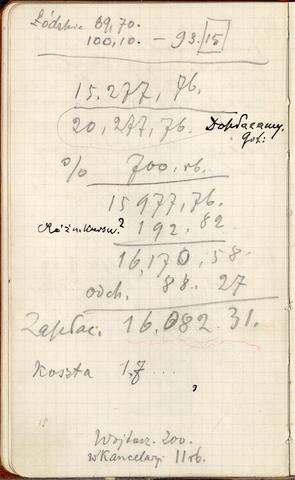 Łódzkie 89,70.
100,10. — 93.15
15.277,76.
20,277,76. Dopłacamy.
got:
% 700, rb.
15977,76.
Różn. kursw.? 192.82
16,170,58.
odch. 88.27
Zapłac. 16.082.31.
Koszta 1,7...
15
Wojtasz. 200.
w Kancelarji 11 rb.